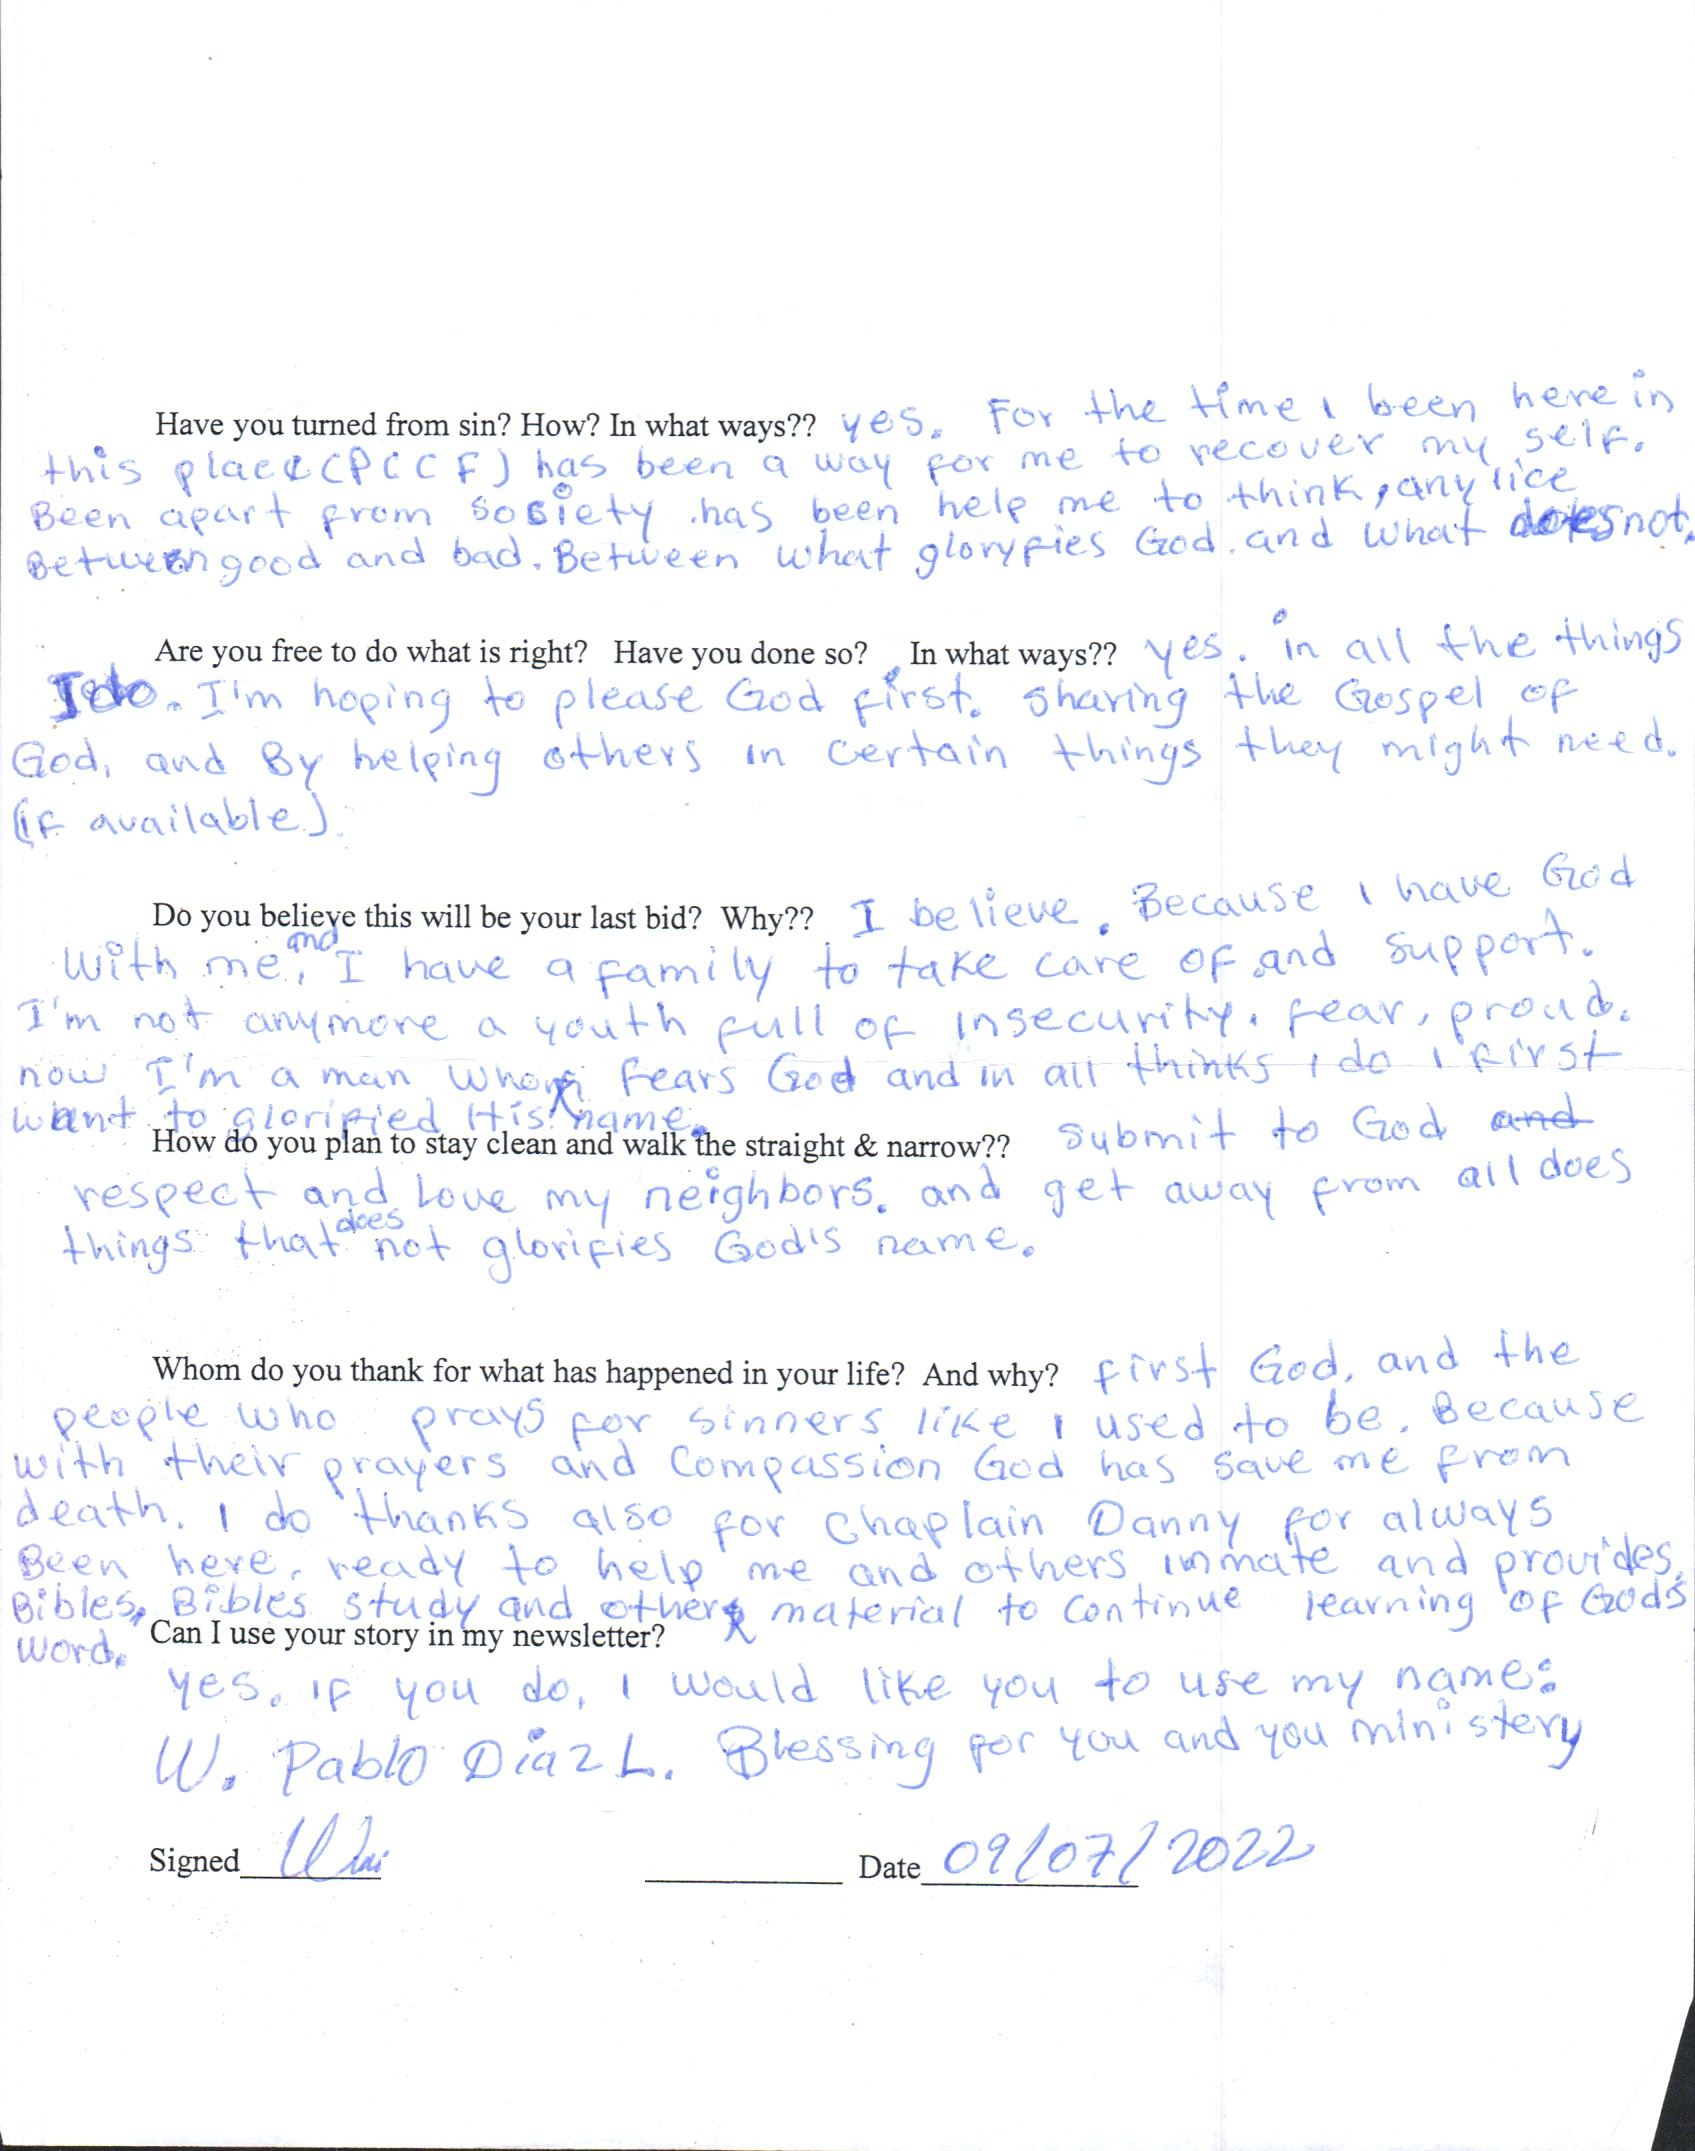 Have you turned from sin? How? In what ways?? yes. For the time I been here in
this place (PCCF) has been a way for me to recover my self.
Been apart from sosiety has been help me to think, anylice
Between good and bad. Between what gloryfies God. and what does not.
Are you free to do what is right? Have you done so? In what ways?? yes. in all the things
I do. I'm hoping to please God first. sharing the Gospel of
God, and By helping others in certain things they might need.
(if available).
Do you believe this will be your last bid? Why?? I believe. Because I have God
with me, and I have a family to take care of and support.
I'm not anymore a youth full of insecurity. fear, proud.
now I'm a man who fears God and in all thinks I do I first
want to glorified His name.
How do you plan to stay clean and walk the straight & narrow?? submit to God and
respect and Love my neighbors. and get away from all does
things that does not glorifies God's name.
Whom do you thank for what has happened in your life? And why? first God, and the
people who prays for sinners like I used to be. Because
with their prayers and compassion God has save me from
death. I do thanks also for Chaplain Danny for always
Been here, ready to help me and others inmate and provides,
Bibles, Bibles study and other material to continue learning of God's
word.
Can I use your story in my newsletter?
yes. if you do, I would like you to use my name:
W. Pablo Diaz L. Blessing for you and you ministery
Signed Date 09/07/2022